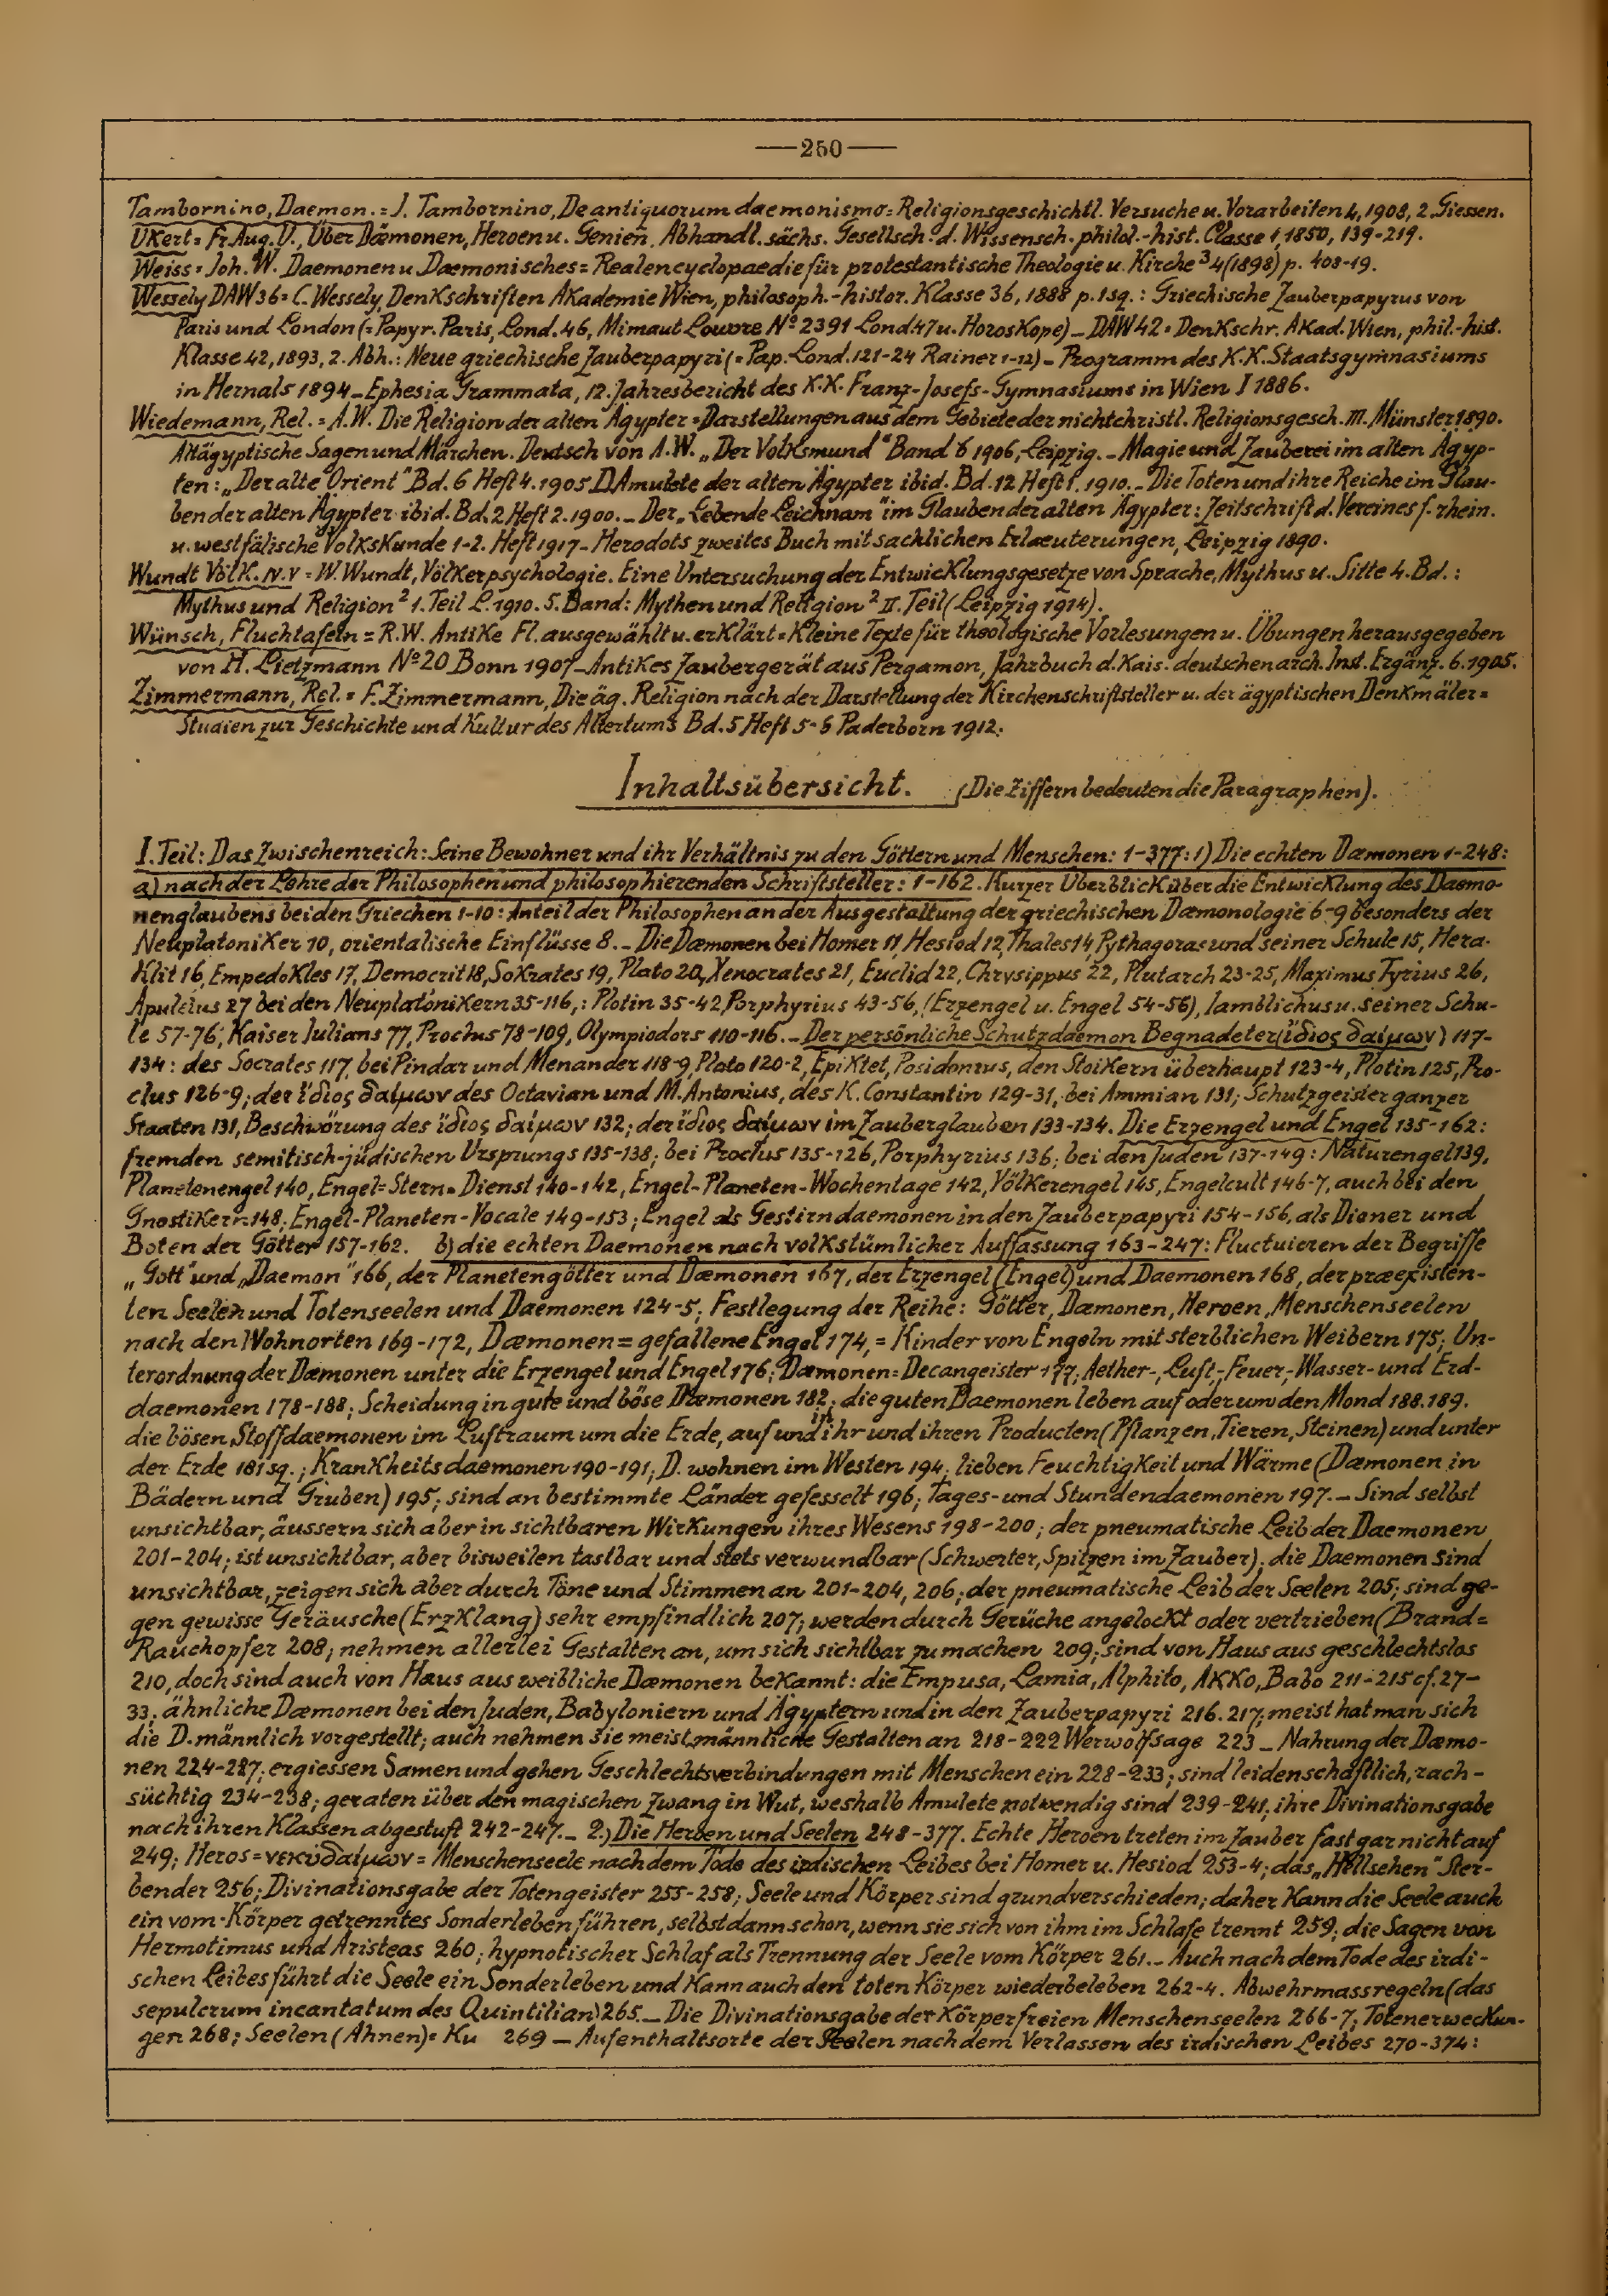 —250—
Tambornino, Daemon. = J. Tambornino, De antiquorum daemonismo = Religionsgeschichtl. Versuche u. Vorarbeiten 4, 1908, 2. Giessen.
Ukert = Fr. Aug. U., Über Dæmonen, Heroen u. Genien, Abhandl. sächs. Gesellsch. d. Wissensch. philol.-hist. Classe 1, 1850, 139-219.
Weiss = Joh. W. Daemonen u. Dæmonisches = Realencyclopaedie für protestantische Theologie u. Kirche ³ 4 (1898) p. 408-19.
Wessely DAW 36 = C. Wessely Denkschriften Akademie Wien, philosoph.-histor. Klasse 36, 1888 p. 1 sq. : Griechische Zauberpapyrus von
Paris und London (= Papyr. Paris, Lond. 46, Mimaut Louvre Nº 2391 Lond 47 u. Horoskope) – DAW 42 = Denkschr. Akad. Wien, phil.-hist.
Klasse 42, 1893, 2. Abh.: Neue griechische Zauberpapyri (= Pap. Lond. 121-24 Rainer 1-12) – Programm des K.K. Staatsgymnasiums
in Hernals 1894 – Ephesia Grammata, 12. Jahresbericht des K.K. Franz-Josefs-Gymnasiums in Wien I 1886.
Wiedemann, Rel. = A.W. Die Religion der alten Ägypter = Darstellungen aus dem Gebiete der nichtchristl. Religionsgesch. III. Münster 1890.
Altägyptische Sagen und Märchen. Deutsch von A.W. „Der Volksmund" Band 6 1906, Leipzig. – Magie und Zauberei im alten Ägyp-
ten: „Der alte Orient" Bd. 6 Heft 4. 1905 D. Amulete der alten Ägypter ibid. Bd. 12 Heft 1. 1910. – Die Toten und ihre Reiche im Glau-
ben der alten Ägypter ibid. Bd. 2 Heft 2. 1900. – Der „Lebende Leichnam" im Glauben der alten Ägypter: Zeitschrift d. Vereines f. rhein.
u. westfälische Volkskunde 1-2. Heft 1917 – Herodots zweites Buch mit sachlichen Erlaeuterungen, Leipzig 1890.
Wundt Völk. IV. V = W. Wundt, Völkerpsychologie. Eine Untersuchung der Entwicklungsgesetze von Sprache, Mythus u. Sitte 4. Bd.:
Mythus und Religion ² 1. Teil L. 1910. 5. Band: Mythen und Religion ² II. Teil (Leipzig 1914).
Wünsch, Fluchtafeln = R.W. Antike Fl. ausgewählt u. erklärt = Kleine Texte für theologische Vorlesungen u. Übungen herausgegeben
von H. Lietzmann Nº 20 Bonn 1907 – Antikes Zaubergerät aus Pergamon, Jahrbuch d. Kais. deutschen arch. Inst. Ergänz. 6. 1905.
Zimmermann, Rel. = F. Zimmermann, Die äg. Religion nach der Darstellung der Kirchenschriftsteller u. der ägyptischen Denkmäler =
Studien zur Geschichte und Kultur des Altertums Bd. 5 Heft 5-6 Paderborn 1912.
Inhaltsübersicht. (Die Ziffern bedeuten die Paragraphen).
I. Teil: Das Zwischenreich: Seine Bewohner und ihr Verhältnis zu den Göttern und Menschen: 1-377: 1) Die echten Dæmonen 1-248:
a) nach der Lehre der Philosophen und philosophierenden Schriftsteller: 1-162. Kurzer Überblick über die Entwicklung des Daemo-
nenglaubens bei den Griechen 1-10: Anteil der Philosophen an der Ausgestaltung der griechischen Dæmonologie 6-9 besonders der
Neuplatoniker 10, orientalische Einflüsse 8. – Die Dæmonen bei Homer 11, Hesiod 12, Thales 14, Pythagoras und seiner Schule 15, Hera-
klit 16, Empedokles 17, Democrit 18, Sokrates 19, Plato 20, Xenocrates 21, Euclid 22, Chrysippus 22, Plutarch 23-25, Maximus Tyrius 26,
Apuleius 27 bei den Neuplatonikern 35-116,: Plotin 35-42, Porphyrius 43-56, (Erzengel u. Engel 54-56), Iamblichus u. seiner Schu-
le 57-76, Kaiser Iulians 77, Proclus 78-109, Olympiodors 110-116. – Der persönliche Schutzdaemon Begnadeter (ἴδιος δαίμων) 117-
134: des Socrates 117, bei Pindar und Menander 118-9, Plato 120-2, Epiktet, Posidonius, den Stoikern überhaupt 123-4, Plotin 125, Pro-
clus 126-9; der ἴδιος δαίμων des Octavian und M. Antonius, des K. Constantin 129-31, bei Ammian 131; Schutzgeister ganzer
Staaten 131, Beschwörung des ἴδιος δαίμων 132; der ἴδιος δαίμων im Zauberglauben 133-134. Die Erzengel und Engel 135-162:
fremden semitisch-jüdischen Ursprungs 135-138; bei Proclus 135-126, Porphyrius 136; bei den Juden 137-149: Naturengel 139,
Planetenengel 140, Engel = Stern = Dienst 140-142, Engel-Planeten-Wochentage 142, Völkerengel 145, Engelcult 146-7, auch bei den
Gnostikern 148; Engel-Planeten-Vocale 149-153; Engel als Gestirndaemonen in den Zauberpapyri 154-156, als Diener und
Boten der Götter 157-162. b) die echten Daemonen nach volkstümlicher Auffassung 163-247: Fluctuieren der Begriffe
„Gott" und „Daemon" 166, der Planetengötter und Dæmonen 167, der Erzengel (Engel) und Daemonen 168, der præexisten-
ten Seelen und Totenseelen und Daemonen 124-5; Festlegung der Reihe: Götter, Dæmonen, Heroen, Menschenseelen
nach den Wohnorten 169-172, Dæmonen = gefallene Engel 174, = Kinder von Engeln mit sterblichen Weibern 175; Un-
terordnung der Dæmonen unter die Erzengel und Engel 176; Dæmonen = Decangeister 177; Aether-, Luft-, Feuer-, Wasser- und Erd-
daemonen 178-188; Scheidung in gute und böse Dæmonen 182; die guten Daemonen leben auf oder um den Mond 188. 189.
die bösen Stoffdaemonen im Luftraum um die Erde, auf und in ihr und ihren Producten (Pflanzen, Tieren, Steinen) und unter
der Erde 181 sq.; Krankheitsdaemonen 190-191; D. wohnen im Westen 194; lieben Feuchtigkeit und Wärme (Dæmonen in
Bädern und Gruben) 195; sind an bestimmte Länder gefesselt 196; Tages- und Stundendaemonen 197. – Sind selbst
unsichtbar, äussern sich aber in sichtbaren Wirkungen ihres Wesens 198-200; der pneumatische Leib der Daemonen
201-204; ist unsichtbar, aber bisweilen tastbar und stets verwundbar (Schwerter, Spitzen im Zauber); die Daemonen sind
unsichtbar, zeigen sich aber durch Töne und Stimmen an 201-204, 206; der pneumatische Leib der Seelen 205; sind ge-
gen gewisse Geräusche (Erzklang) sehr empfindlich 207; werden durch Gerüche angelockt oder vertrieben (Brand =
Rauchopfer 208; nehmen allerlei Gestalten an, um sich sichtbar zu machen 209; sind von Haus aus geschlechtslos
210, doch sind auch von Haus aus weibliche Dæmonen bekannt: die Empusa, Lamia, Alphito, Akko, Babo 211-215 cf. 27-
33; ähnliche Dæmonen bei den Juden, Babyloniern und Ägyptern und in den Zauberpapyri 216. 217; meist hat man sich
die D. männlich vorgestellt; auch nehmen sie meist männliche Gestalten an 218-222 Werwolfsage 223 – Nahrung der Dæmo-
nen 224-227; ergiessen Samen und gehen Geschlechtsverbindungen mit Menschen ein 228-233; sind leidenschaftlich, rach-
süchtig 234-238; geraten über den magischen Zwang in Wut, weshalb Amulete notwendig sind 239-241; ihre Divinationsgabe
nach ihren Klassen abgestuft 242-247. – 2.) Die Heroen und Seelen 248-377. Echte Heroen treten im Zauber fast gar nicht auf
249; Heros = νεκυδαίμων = Menschenseele nach dem Tode des irdischen Leibes bei Homer u. Hesiod 253-4; das „Hellsehen" Ster-
bender 256; Divinationsgabe der Totengeister 255-258; Seele und Körper sind grundverschieden; daher kann die Seele auch
ein vom Körper getrenntes Sonderleben führen, selbst dann schon, wenn sie sich von ihm im Schlafe trennt 259; die Sagen von
Hermotimus und Aristeas 260; hypnotischer Schlaf als Trennung der Seele vom Körper 261. – Auch nach dem Tode des irdi-
schen Leibes führt die Seele ein Sonderleben und kann auch den toten Körper wiederbeleben 262-4. Abwehrmassregeln (das
sepulcrum incantatum des Quintilian) 265. – Die Divinationsgabe der körperfreien Menschenseelen 266-7; Totenerweckun-
gen 268; Seelen (Ahnen) = Ku 269 – Aufenthaltsorte der Seelen nach dem Verlassen des irdischen Leibes 270-374: